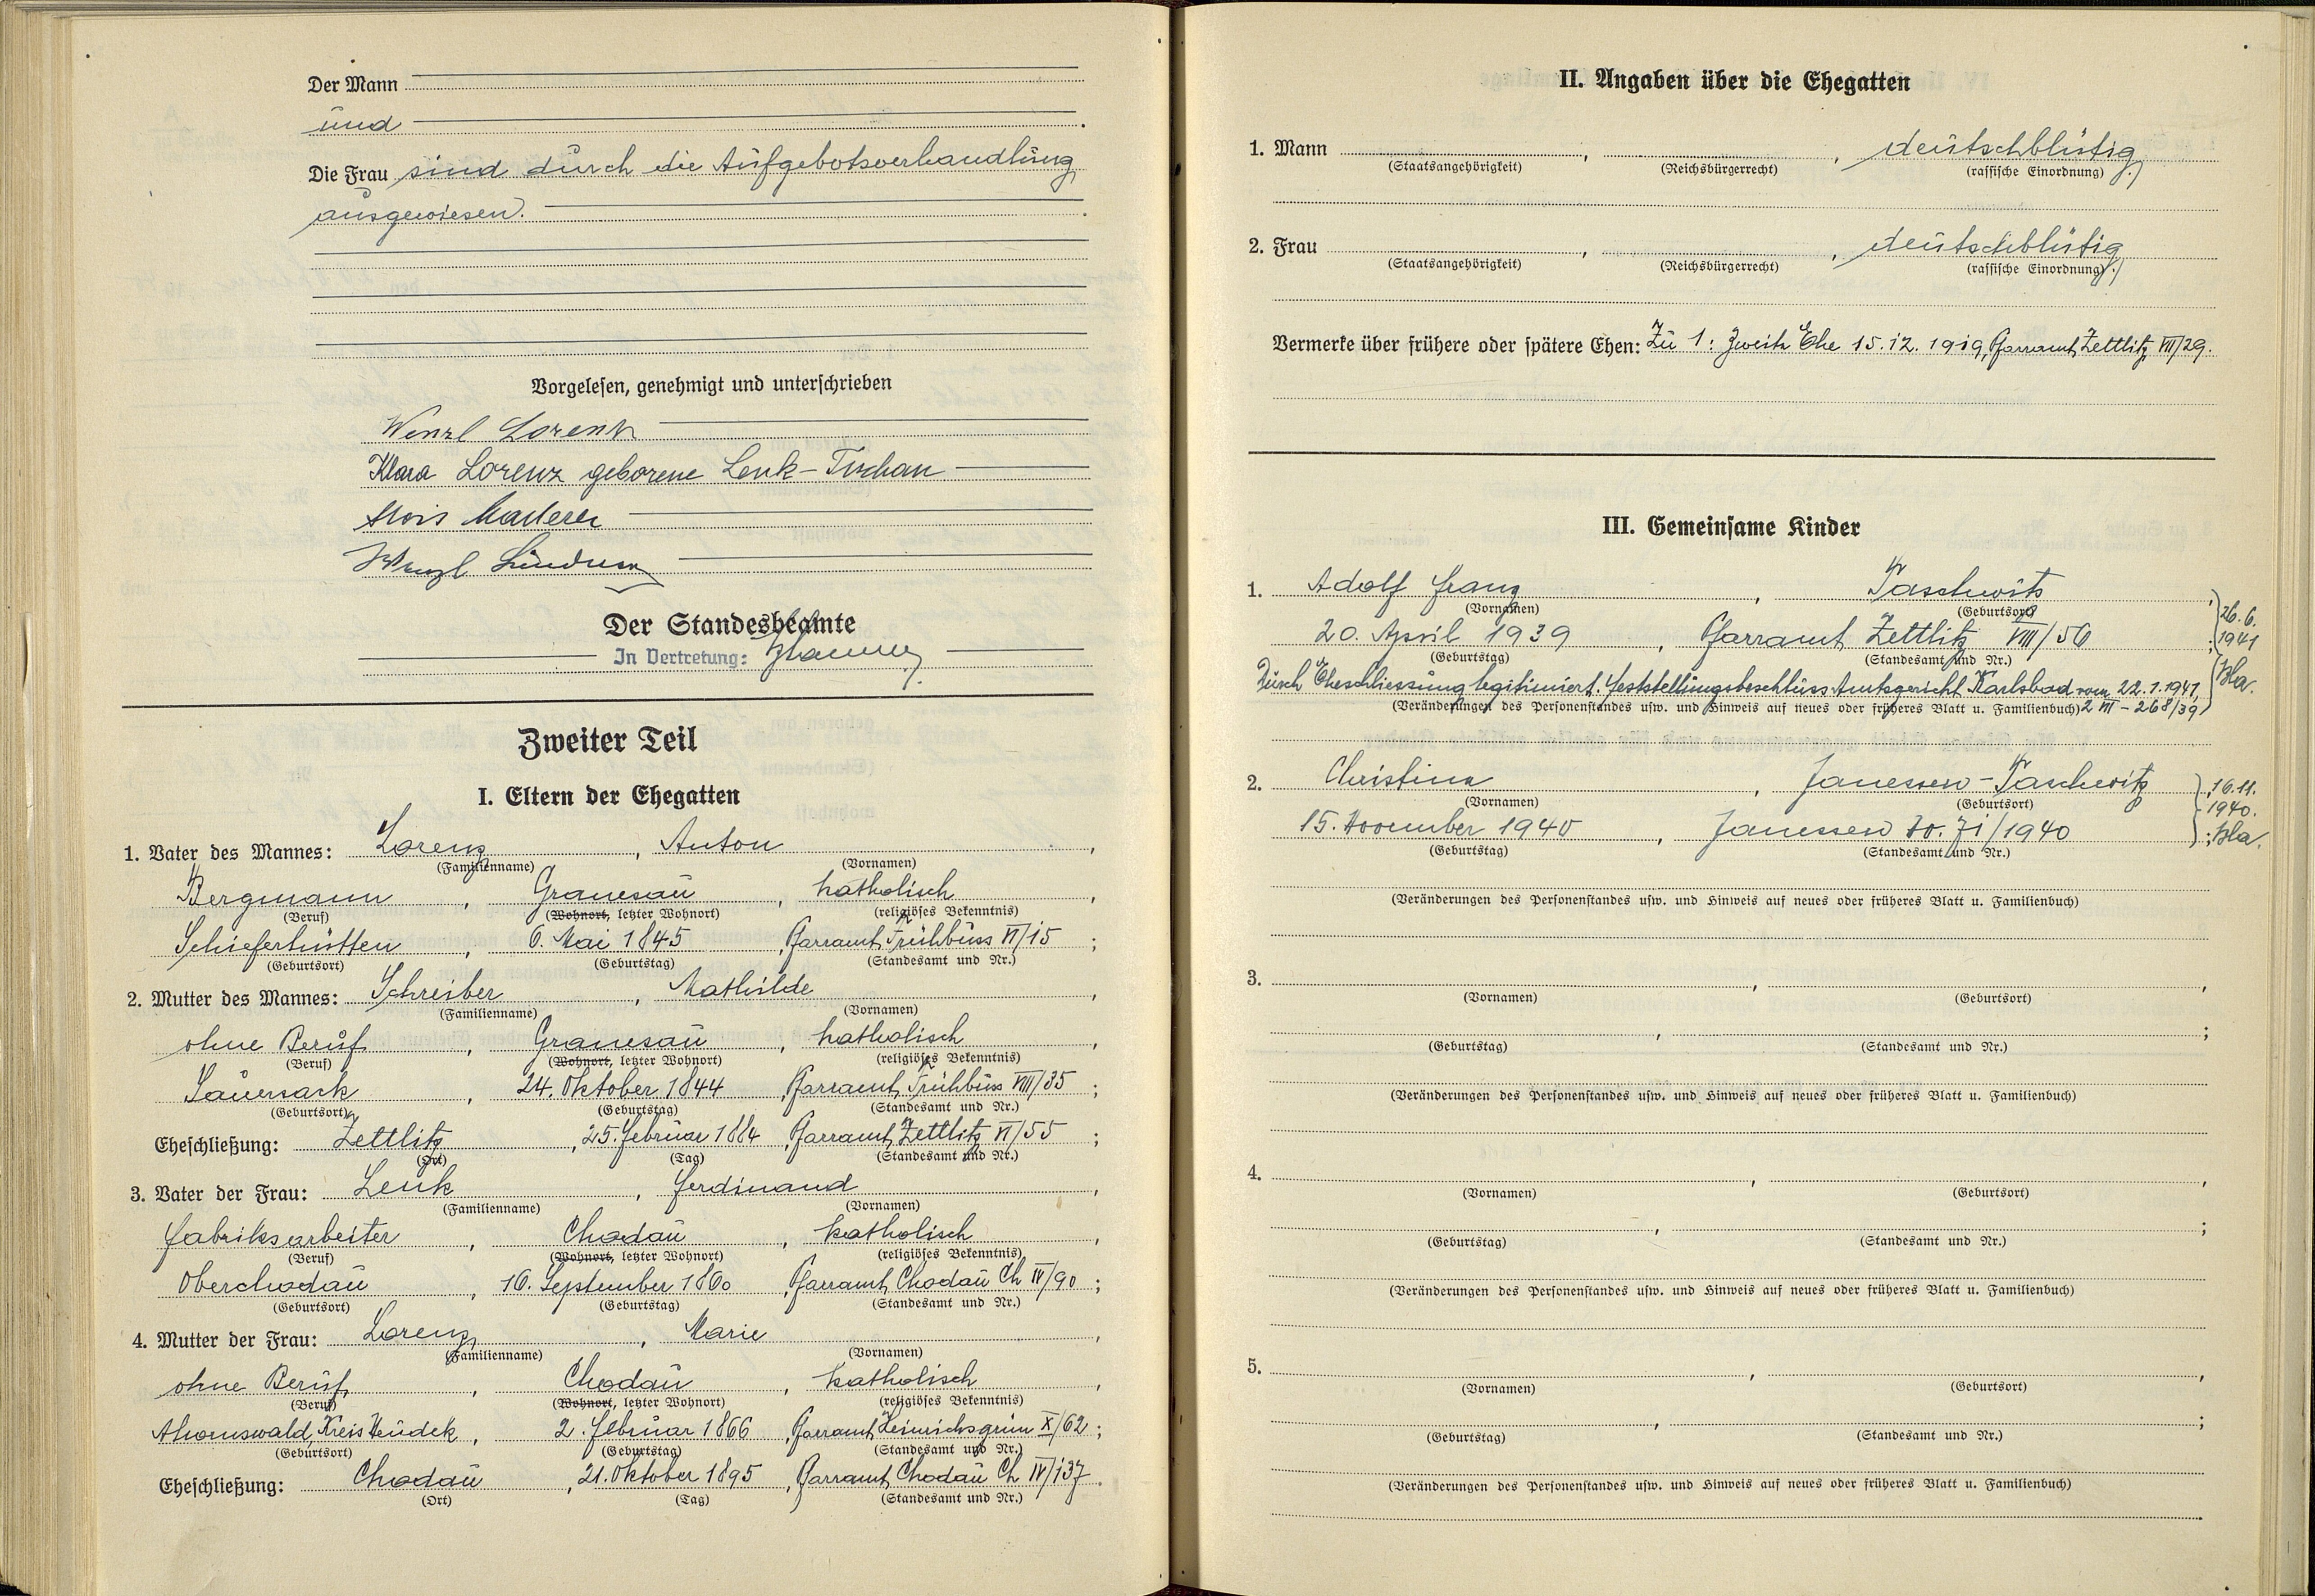 Der Mann
und
Die Frau sind durch die Aufgebotsverhandlung
ausgewiesen.
Vorgelesen, genehmigt und unterschrieben
Wenzl Lorenz
Klara Lorenz geborene Lenk-Tuschan
Alois
Wenzl
Der Standesbeamte
In Vertretung:
Zweiter Teil
I. Eltern der Ehegatten
1. Vater des Mannes: Lorenz, Anton,
(Familienname) (Vornamen)
Bergmann, Granesau, katholisch,
(Beruf) (Wohnort, letzter Wohnort) (religiöses Bekenntnis)
Schieferhütten, 6. Mai 1845, Pfarramt Frühbuss VI/15;
(Geburtsort) (Geburtstag) (Standesamt und Nr.)
2. Mutter des Mannes: Schreiber, Mathilde,
(Familienname) (Vornamen)
ohne Beruf, Granesau, katholisch,
(Beruf) (Wohnort, letzter Wohnort) (religiöses Bekenntnis)
Sauersack, 24. Oktober 1844, Pfarramt Frühbuss VIII/35;
(Geburtsort) (Geburtstag) (Standesamt und Nr.)
Eheschließung: Zettlitz, 25. Februar 1884, Pfarramt Zettlitz VI/55;
(Ort) (Tag) (Standesamt und Nr.)
3. Vater der Frau: Lenk, Ferdinand,
(Familienname) (Vornamen)
Fabriksarbeiter, Chodau, katholisch,
(Beruf) (Wohnort, letzter Wohnort) (religiöses Bekenntnis)
Oberchodau, 16. September 1860, Pfarramt Chodau Ch IV/90;
(Geburtsort) (Geburtstag) (Standesamt und Nr.)
4. Mutter der Frau: Lorenz, Marie,
(Familienname) (Vornamen)
ohne Beruf, Chodau, katholisch,
(Beruf) (Wohnort, letzter Wohnort) (religiöses Bekenntnis)
Ahornswald, Kreis Neudek, 2. Februar 1866, Pfarramt Heinrichsgrün X/62;
(Geburtsort) (Geburtstag) (Standesamt und Nr.)
Eheschließung: Chodau, 21. Oktober 1895, Pfarramt Chodau Ch IV/137.
(Ort) (Tag) (Standesamt und Nr.)
II. Angaben über die Ehegatten
1. Mann , , deutschblütig
(Staatsangehörigkeit) (Reichsbürgerrecht) (rassische Einordnung)
2. Frau , , deutschblütig
(Staatsangehörigkeit) (Reichsbürgerrecht) (rassische Einordnung)
Vermerke über frühere oder spätere Ehen: Zu 1: Zweite Ehe 15.12.1919, Pfarramt Zettlitz VII/29.
III. Gemeinsame Kinder
1. Adolf Franz, Taschwitz,
(Vornamen) (Geburtsort)
20. April 1939, Pfarramt Zettlitz VIII/56;
(Geburtstag) (Standesamt und Nr.)
Durch Eheschliessung legitimiert. Feststellungsbeschluss Amtsgericht Karlsbad vom 22.1.1941,
(Veränderungen des Personenstandes usw. und Hinweis auf neues oder früheres Blatt u. Familienbuch) 2 VII - 268/39
26.6.
1941
Bla.
2. Christina, Janessen-Taschwitz,
(Vornamen) (Geburtsort)
15. November 1940, Janessen Zo. 71/1940;
(Geburtstag) (Standesamt und Nr.)
16.11.
1940.
Bla.
(Veränderungen des Personenstandes usw. und Hinweis auf neues oder früheres Blatt u. Familienbuch)
3. , ,
(Vornamen) (Geburtsort)
, ;
(Geburtstag) (Standesamt und Nr.)
(Veränderungen des Personenstandes usw. und Hinweis auf neues oder früheres Blatt u. Familienbuch)
4. , ,
(Vornamen) (Geburtsort)
, ;
(Geburtstag) (Standesamt und Nr.)
(Veränderungen des Personenstandes usw. und Hinweis auf neues oder früheres Blatt u. Familienbuch)
5. , ,
(Vornamen) (Geburtsort)
, ;
(Geburtstag) (Standesamt und Nr.)
(Veränderungen des Personenstandes usw. und Hinweis auf neues oder früheres Blatt u. Familienbuch)